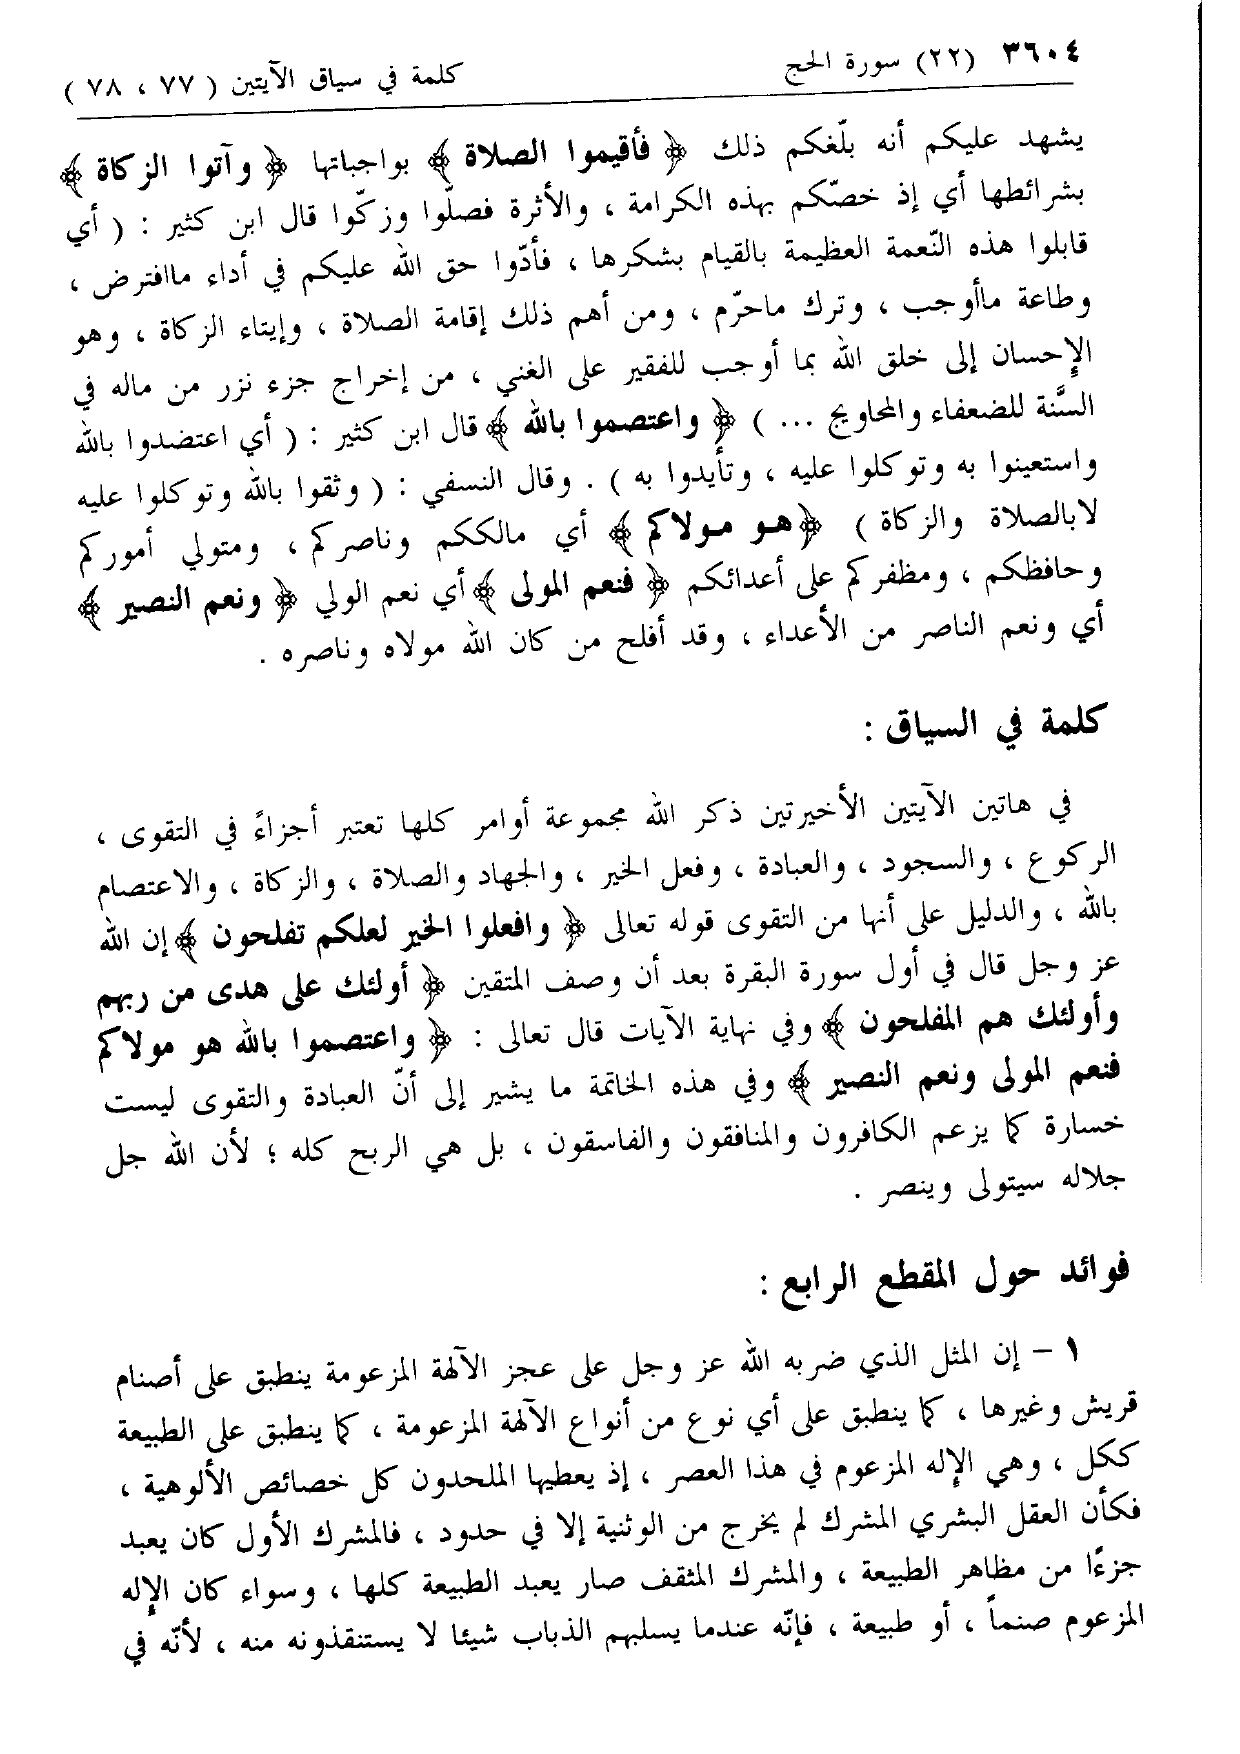 ٣٦٠٤ (٢٢) سورة الحج كلمة في سياق الآيتين ( ٧٧ ، ٧٨ )
يشهد عليكم أنه بلّغكم ذلك ﴿ فأقيموا الصلاة ﴾ بواجباتها ﴿ وآتوا الزكاة ﴾
بشرائطها أي إذ خصّكم بهذه الكرامة ، والأثرة فصلّوا وزكّوا قال ابن كثير : ( أي
قابلوا هذه النّعمة العظيمة بالقيام بشكرها ، فأدّوا حق الله عليكم في أداء ماافترض ،
وطاعة ماأوجب ، وترك ماحرّم ، ومن أهم ذلك إقامة الصلاة ، وإيتاء الزكاة ، وهو
الإحسان إلى خلق الله بما أوجب للفقير على الغني ، من إخراج جزء نزر من ماله في
السَّنة للضعفاء والمحاويج ... ) ﴿ واعتصموا بالله ﴾ قال ابن كثير : ( أي اعتضدوا بالله
واستعينوا به وتوكلوا عليه ، وتأيدوا به ) . وقال النسفي : ( وثقوا بالله وتوكلوا عليه
لابالصلاة والزكاة ) ﴿ هو مولاكم ﴾ أي مالككم وناصركم ، ومتولي أموركم
وحافظكم ، ومظفركم على أعدائكم ﴿ فنعم المولى ﴾ أي نعم الولي ﴿ ونعم النصير ﴾
أي ونعم الناصر من الأعداء ، وقد أفلح من كان الله مولاه وناصره .
كلمة في السياق :
في هاتين الآيتين الأخيرتين ذكر الله مجموعة أوامر كلها تعتبر أجزاءً في التقوى ،
الركوع ، والسجود ، والعبادة ، وفعل الخير ، والجهاد والصلاة ، والزكاة ، والاعتصام
بالله ، والدليل على أنها من التقوى قوله تعالى ﴿ وافعلوا الخير لعلكم تفلحون ﴾ إن الله
عز وجل قال في أول سورة البقرة بعد أن وصف المتقين ﴿ أولئك على هدى من ربهم
وأولئك هم المفلحون ﴾ وفي نهاية الآيات قال تعالى : ﴿ واعتصموا بالله هو مولاكم
فنعم المولى ونعم النصير ﴾ وفي هذه الخاتمة ما يشير إلى أنّ العبادة والتقوى ليست
خسارة كما يزعم الكافرون والمنافقون والفاسقون ، بل هي الربح كله ؛ لأن الله جل
جلاله سيتولى وينصر .
فوائد حول المقطع الرابع :
١ - إن المثل الذي ضربه الله عز وجل على عجز الآلهة المزعومة ينطبق على أصنام
قريش وغيرها ، كما ينطبق على أي نوع من أنواع الآلهة المزعومة ، كما ينطبق على الطبيعة
ككل ، وهي الإله المزعوم في هذا العصر ، إذ يعطيها الملحدون كل خصائص الألوهية ،
فكأن العقل البشري المشرك لم يخرج من الوثنية إلا في حدود ، فالمشرك الأول كان يعبد
جزءًا من مظاهر الطبيعة ، والمشرك المثقف صار يعبد الطبيعة كلها ، وسواء كان الإله
المزعوم صنماً ، أو طبيعة ، فإنّه عندما يسلبهم الذباب شيئا لا يستنقذونه منه ، لأنّه في